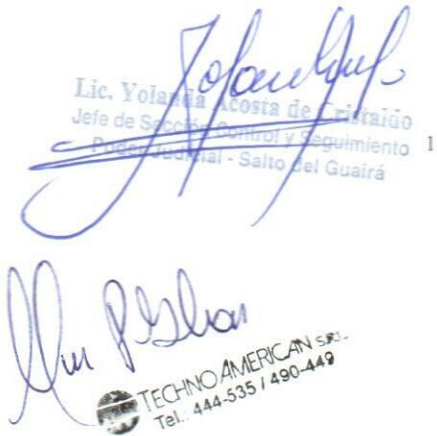 Lic. Yolanda Acosta de Cristaldo
Jefe de Sección Control y Seguimiento 1
Poder Judicial - Salto del Guairá
TECHNO AMERICAN S.R.L.
Tel.: 444-535 / 490-449